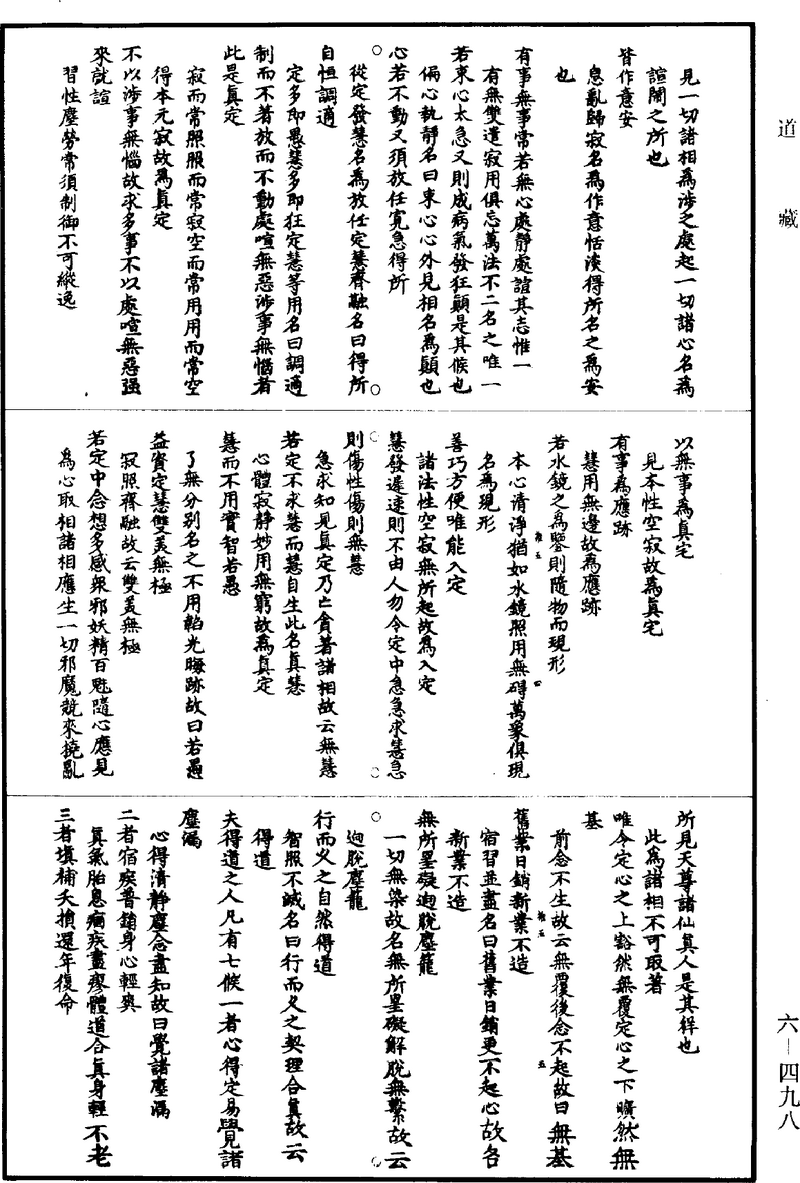 道藏
見一切諸相為涉之處起一切諸心名為
諠鬧之所也
皆作意安
息亂歸寂名為作意恬淡得所名之為安
也
有事無事常若無心處靜處諠其志惟一
有無雙遣寂用俱忘萬法不二名之唯一
若束心太急又則成病氣發狂顛是其候也
偏心執靜名曰束心心外見相名為顛也
心若不動又須放任寬急得所
從定發慧名為放任定慧齊融名曰得所
自恒調適
定多即愚慧多即狂定慧等用名曰調適
制而不著放而不動處喧無惡涉事無惱者
此是真定
寂而常照照而常寂空而常用用而常空
得本元寂故為真定
不以涉事無惱故求多事不以處喧無惡强
來就諠
習性塵勞常須制御不可縱逸
以無事為真宅
見本性空寂故為真宅
有事為應跡
慧用無邊故為應跡
若水鏡之為鑒則隨物而現形
本心清淨猶如水鏡照用無碍萬象俱現
名為現形
善巧方便唯能入定
諸法性空寂無所起故為入定
慧發遲速則不由人勿令定中急急求慧急
則傷性傷則無慧
急求知見真定乃亡貪著諸相故云無慧
若定不求慧而慧自生此名真慧
心體寂靜妙用無窮故為真定
慧而不用實智若愚
了無分别名之不用韜光晦跡故曰若愚
益資定慧雙美無極
寂照齊融故云雙美無極
若定中念想多感衆邪妖精百魅隨心應見
為心取相諸相應生一切邪魔競來撓亂
所見天尊諸仙真人是其祥也
此為諸相不可取著
唯令定心之上豁然無覆定心之下曠然無
基
前念不生故云無覆後念不起故曰無基
舊業日銷新業不造
宿習並盡名曰舊業日銷更不起心故名
新業不造
無所罣礙迥脫塵籠
一切無染故名無所罣礙解脫無繫故云
迥脫塵籠
行而久之自然得道
智照不滅名曰行而久之契理合真故云
得道
夫得道之人凡有七候一者心得定易覺諸
塵漏
心得清靜塵念盡知故曰覺諸塵漏
二者宿疾普銷身心輕爽
真氣胎息痼疾盡瘳體道合真身輕不老
三者填補夭損還年復命
六—四九八